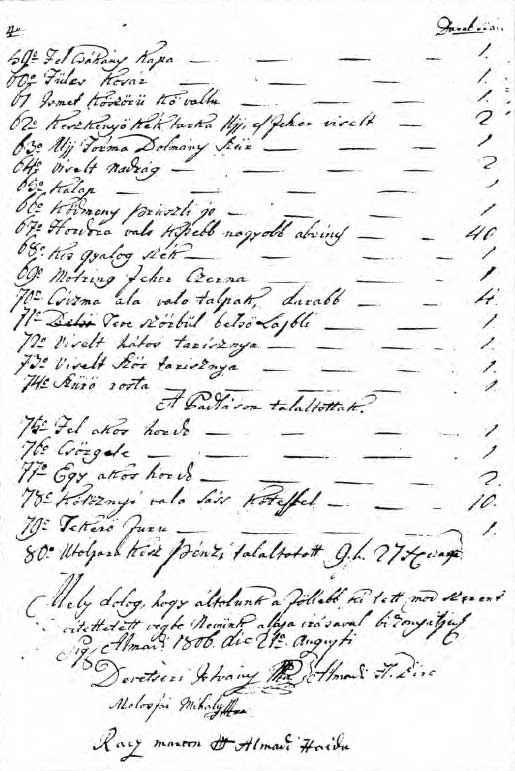 4o Darab szám
59o Fel Csákány Kapa — — — — 1.
60o Füles Kosár — — — — 1.
61 Ismet Köszörű Kő vallu — — — 1.
62o Keszkenyö Kék tarka Ujj, es Feher viselt — — 2
63o Ujj Forma Dolmány Szür — — — 1
64o Viselt Nadrág — — — — 2
65o Kalap — — — — 1
66o Ködmeny jo — — — 1
67o Hordra valo Kissebb nagyobb abrincs — — 40.
68o Kis gyalog szék — — — — 1
69o Motring Feher Czerna — — — 1
70o Csizma ala valo talpak, darabb — — 4.
71o Teve szőrbül belső Lajbli — — 1.
72o Viselt hátos tarisznya — — — 1.
73o Viselt Szőr tarisznya — — — 1.
74o Szürö rosta — — — — 1
A Padláson talaltottak.
75o Fel akos hordo — — — — 1.
76o Csörgele — — — — 1.
77o Egy akos hordo — — — — 2.
78o Kötöznyi valo Sáss Köteffel — — — 10.
79o Tekerö — — — — 1.
80o Utoljára Kész Pénzi talaltotott 27
Mely dolog, hogy általunk a föllebb ki tett mod szerent
vitettetett végbe Nevünk alája irásaval bizonyitjuk
Sig Almadi 1806. die 21a. Augusti
Deretseri Istvány Almadi
Molosfai Mihaly
Racz marton Almadi Haidu